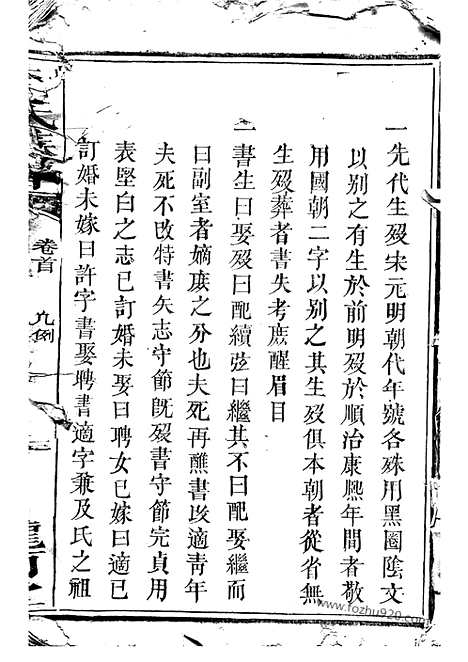 一先代生歿宋元明朝代年號各殊用黑圈陰文
以別之有生於前明歿於順治康熙年間者敬
用國朝二字以別之其生歿俱本朝者從省無
生歿葬者書失考庶醒眉目
一書生曰娶歿曰配續弦曰繼其不曰配娶繼而
曰副室者嫡庶之分也夫死再醮書改適靑年
夫死不改特書矢志守節旣歿書守節完貞用
表堅白之志已訂婚未娶曰聘女已嫁曰適已
訂婚未嫁曰許字書娶聘書適字兼及氏之祖
卷首 凡例
www.fozhu920.com